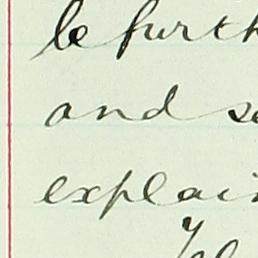 be furth
and se
explai